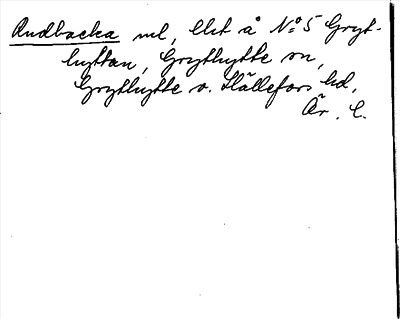 Rudbacka ml, Ekt å No 5 Gryt-
hyttan, Grythytte sn,
Grythytte o. Hällefors hd,
Ör. l.